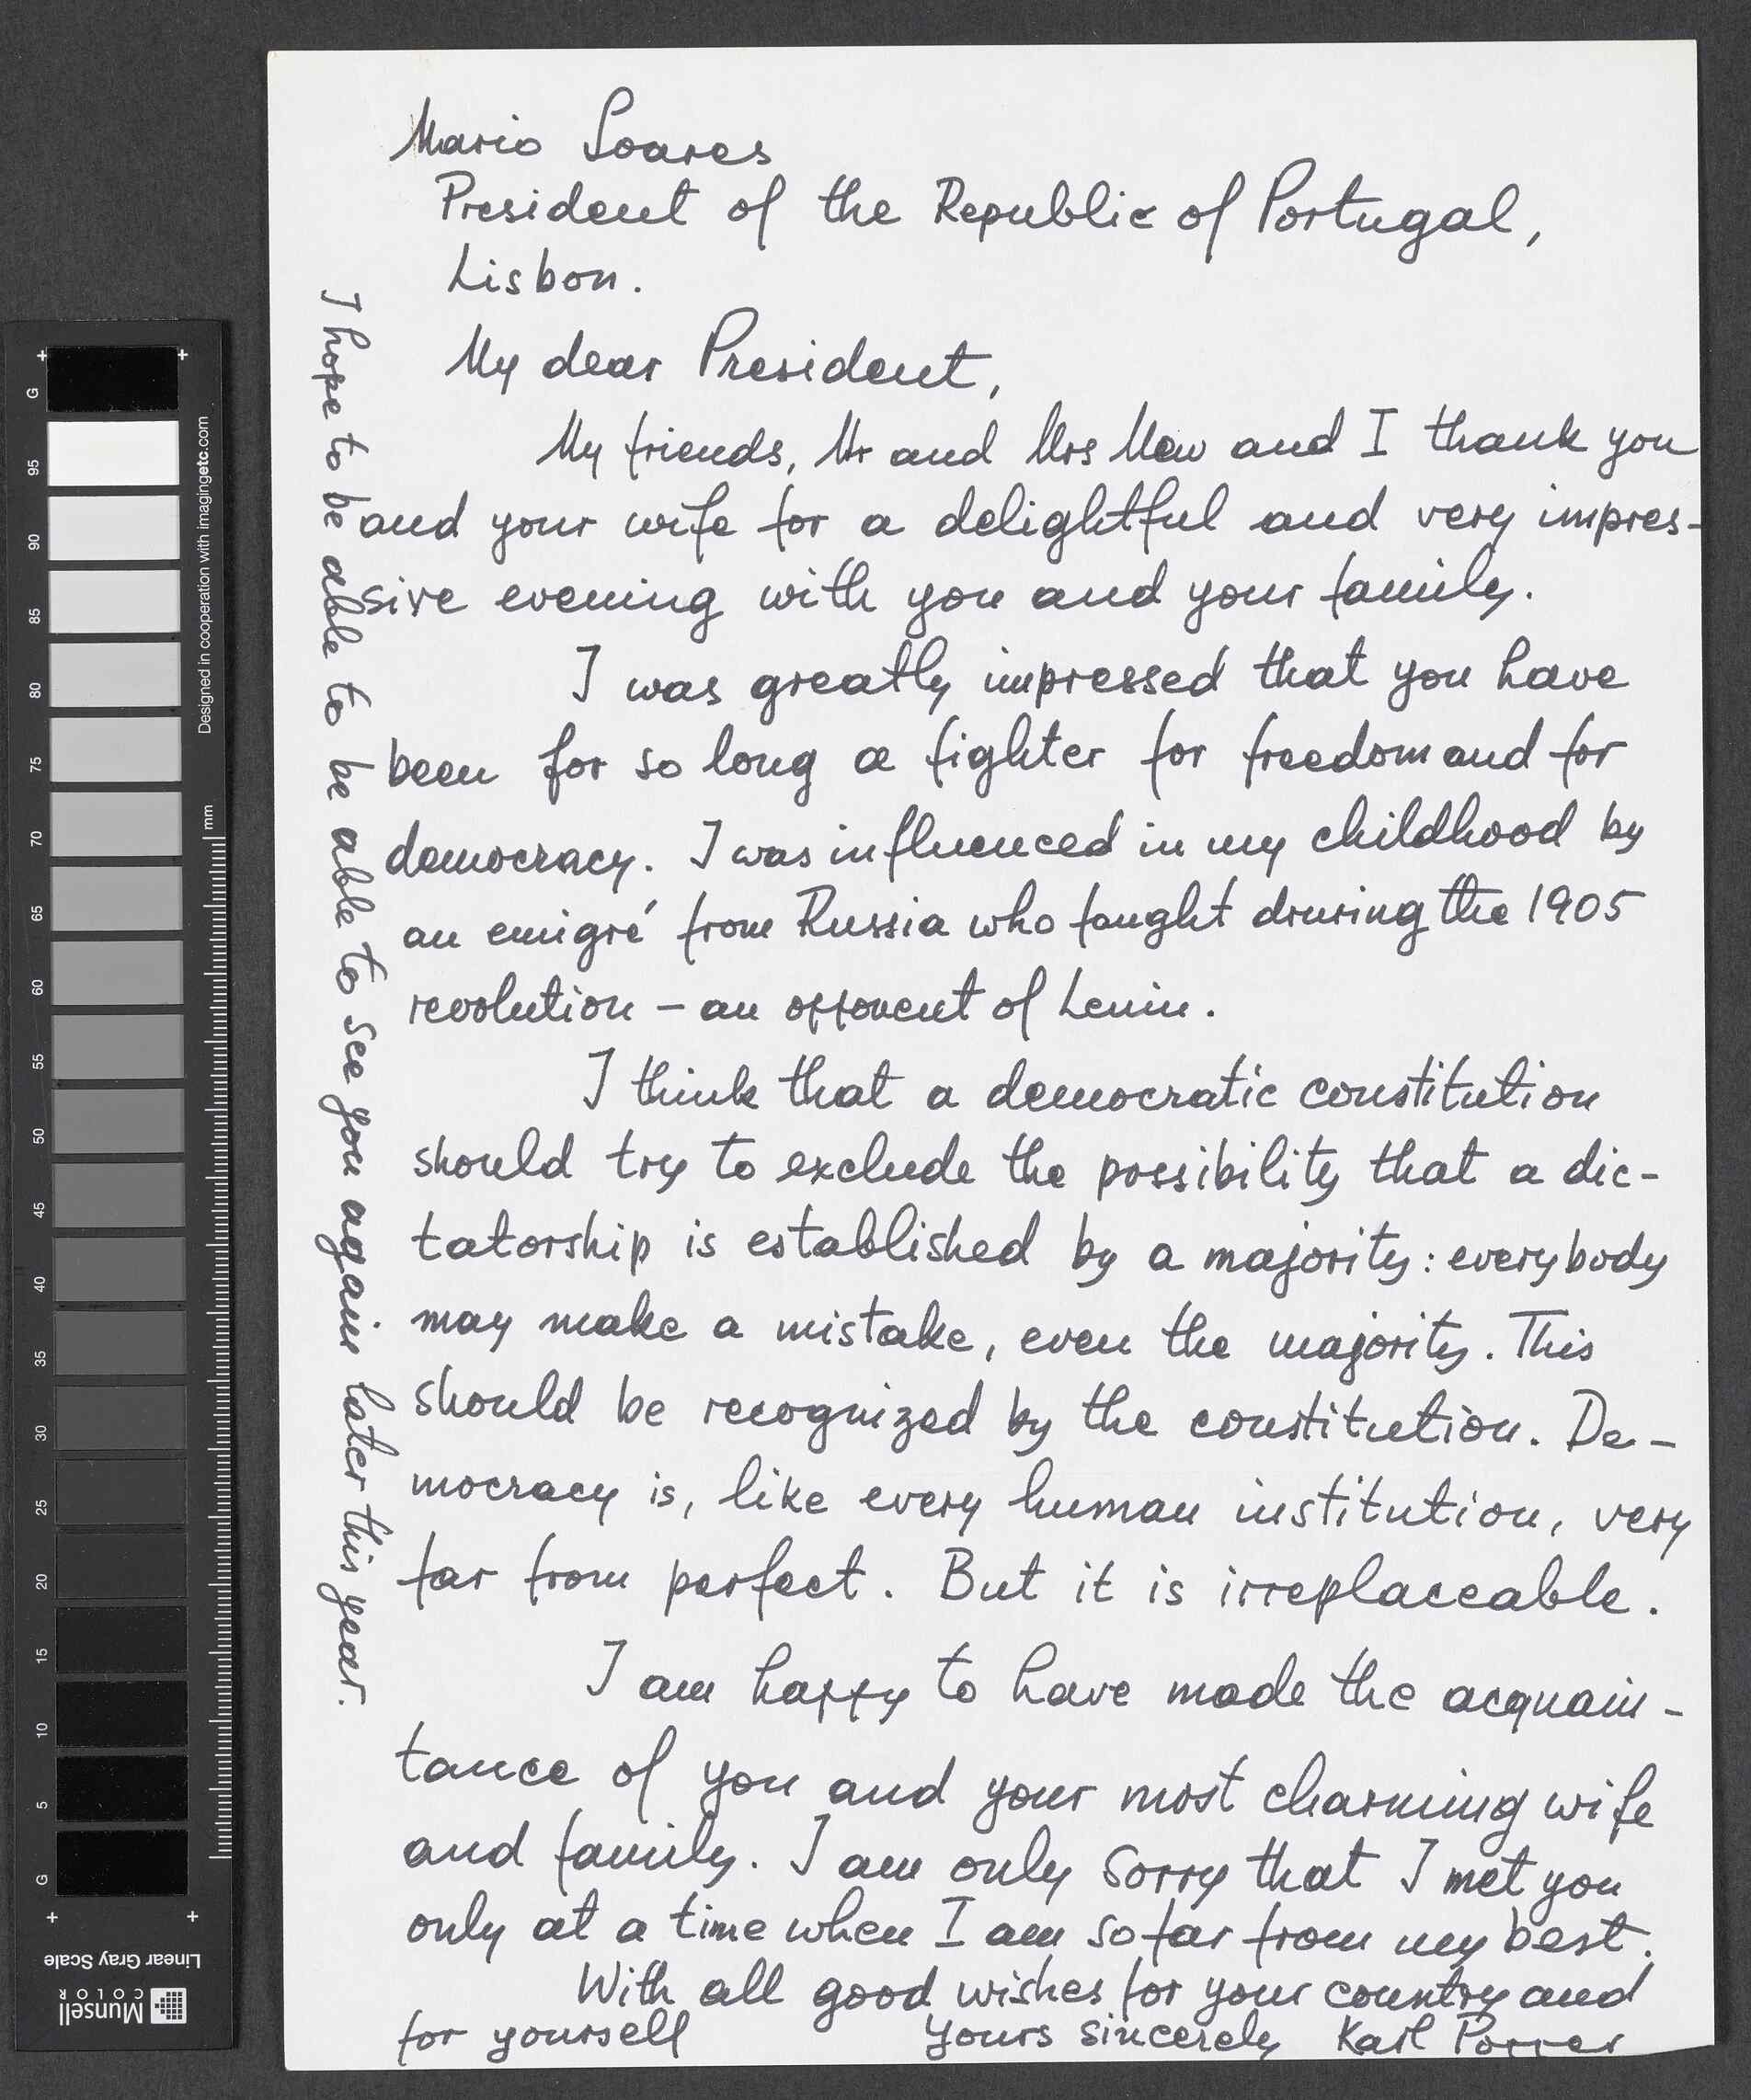 Mario Soares
President of the Republic of Portugal,
Lisbon.
My dear President,
My friends, Mr and Mrs Mew and I thank you
and your wife for a delightful and very impres-
sive evening with you and your family.
I was greatly impressed that you have
been for so long a fighter for freedom and for
democracy. I was influenced in my childhood by
an emigré from Russia who fought druring the 1905
revolution – an opponent of Lenin.
I think that a democratic constitution
should try to exclude the possibility that a dic-
tatorship is established by a majority: everybody
may make a mistake, even the majority. This
should be recognized by the constitution. De-
mocracy is, like every human institution, very
far from perfect. But it is irreplaceable.
I am happy to have made the acquain-
tance of you and your most charming wife
and family. I am only sorry that I met you
only at a time when I am so far from my best.
With all good wishes for your country and
for yourself
Yours sincerely Karl Popper
I hope to be able to be able to see you again later this year.
G
95
90
85
80
75
70
65
60
55
50
45
40
35
30
25
20
15
10
5
G
Designed in cooperation with imagingetc.com
mm
Linear Gray Scale
Munsell
COLOR